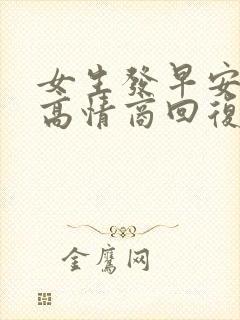 女生發早安
高情商回復
金鷹网